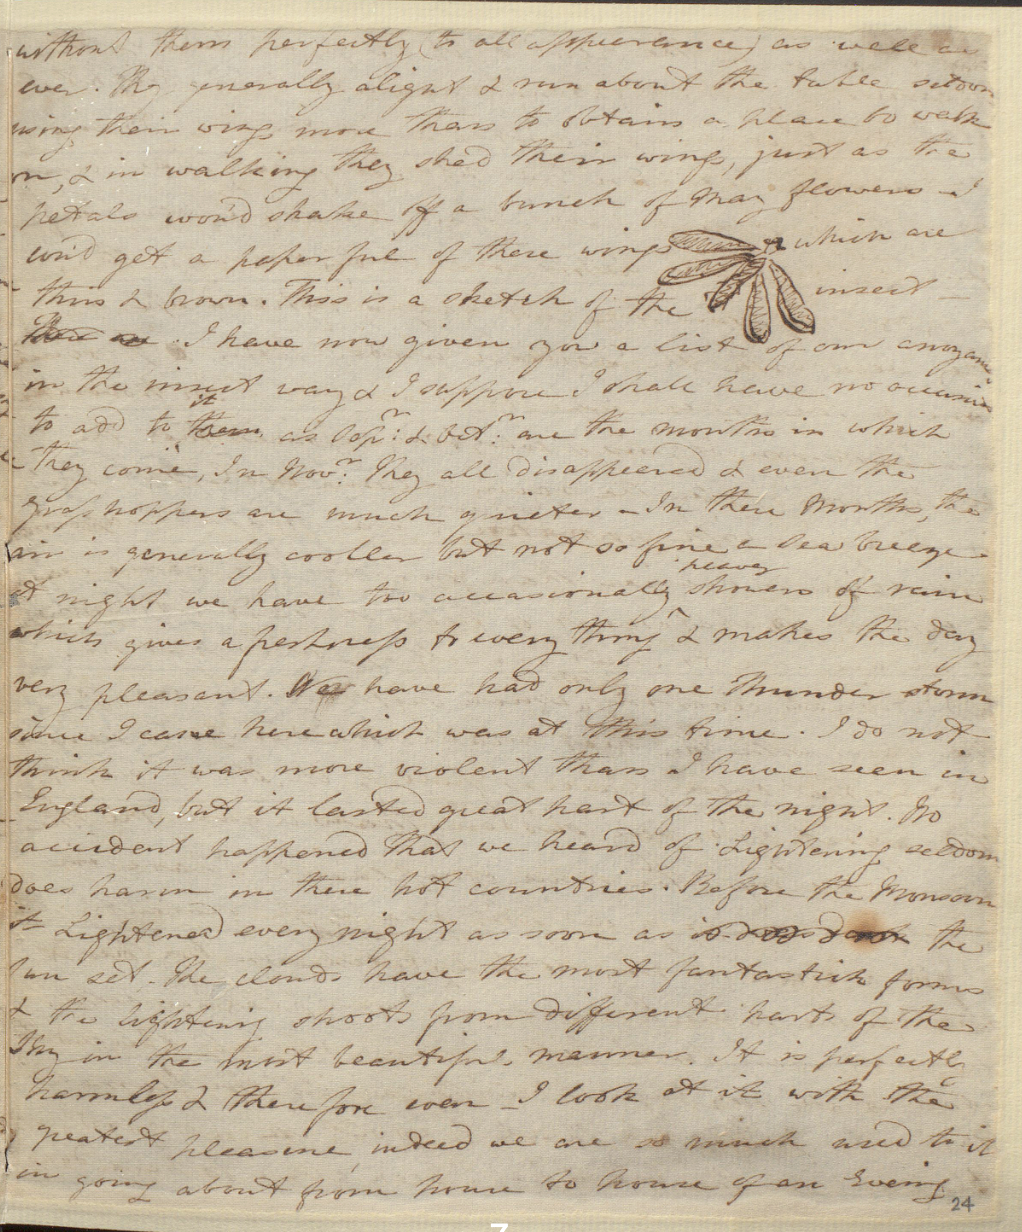 without them perfectly (to all appearance) as well as
ever. They generally alight & run about the table seldom
using their wings more than to obtain a place to walk
on, & in walking they shed their wings, just as the
petals would shake off a bunch of May flowers - I
could get a paper full of these wings which are
thin & brown. This is a sketch of the insect -
I have now given you a list of our anoyances
in the insect way & I suppose I shall have no occasion
to add to them it as Sepr. & Octr. are the months in which
they come, In Novr. They all disappeared & even the
grasshoppers are much quieter - In these Months, the
air is generally cooller but not so fine a Sea breeze
at night we have too occasionally heavy showers of rain
which gives a freshness to every thing & makes the day
very pleasant. We have had only one thunder storm
since I came here which was at this time. I do not
think it was more violent than I have seen in
England, but it lasted great part of the night. No
accident happened that we heard of. Lightening seldom
does harm in these hot countries. Before the Monsoon
it Lightened every night as soon as the
Sun set. The clouds have the most fantastick forms
& the lightening shoots from different parts of the
Sky in the most beautiful manner. It is perfectly
harmless & therefore even I look at it with the
greatest pleasure, indeed we are so much used to it
in going about from house to house of an Evening
24
7